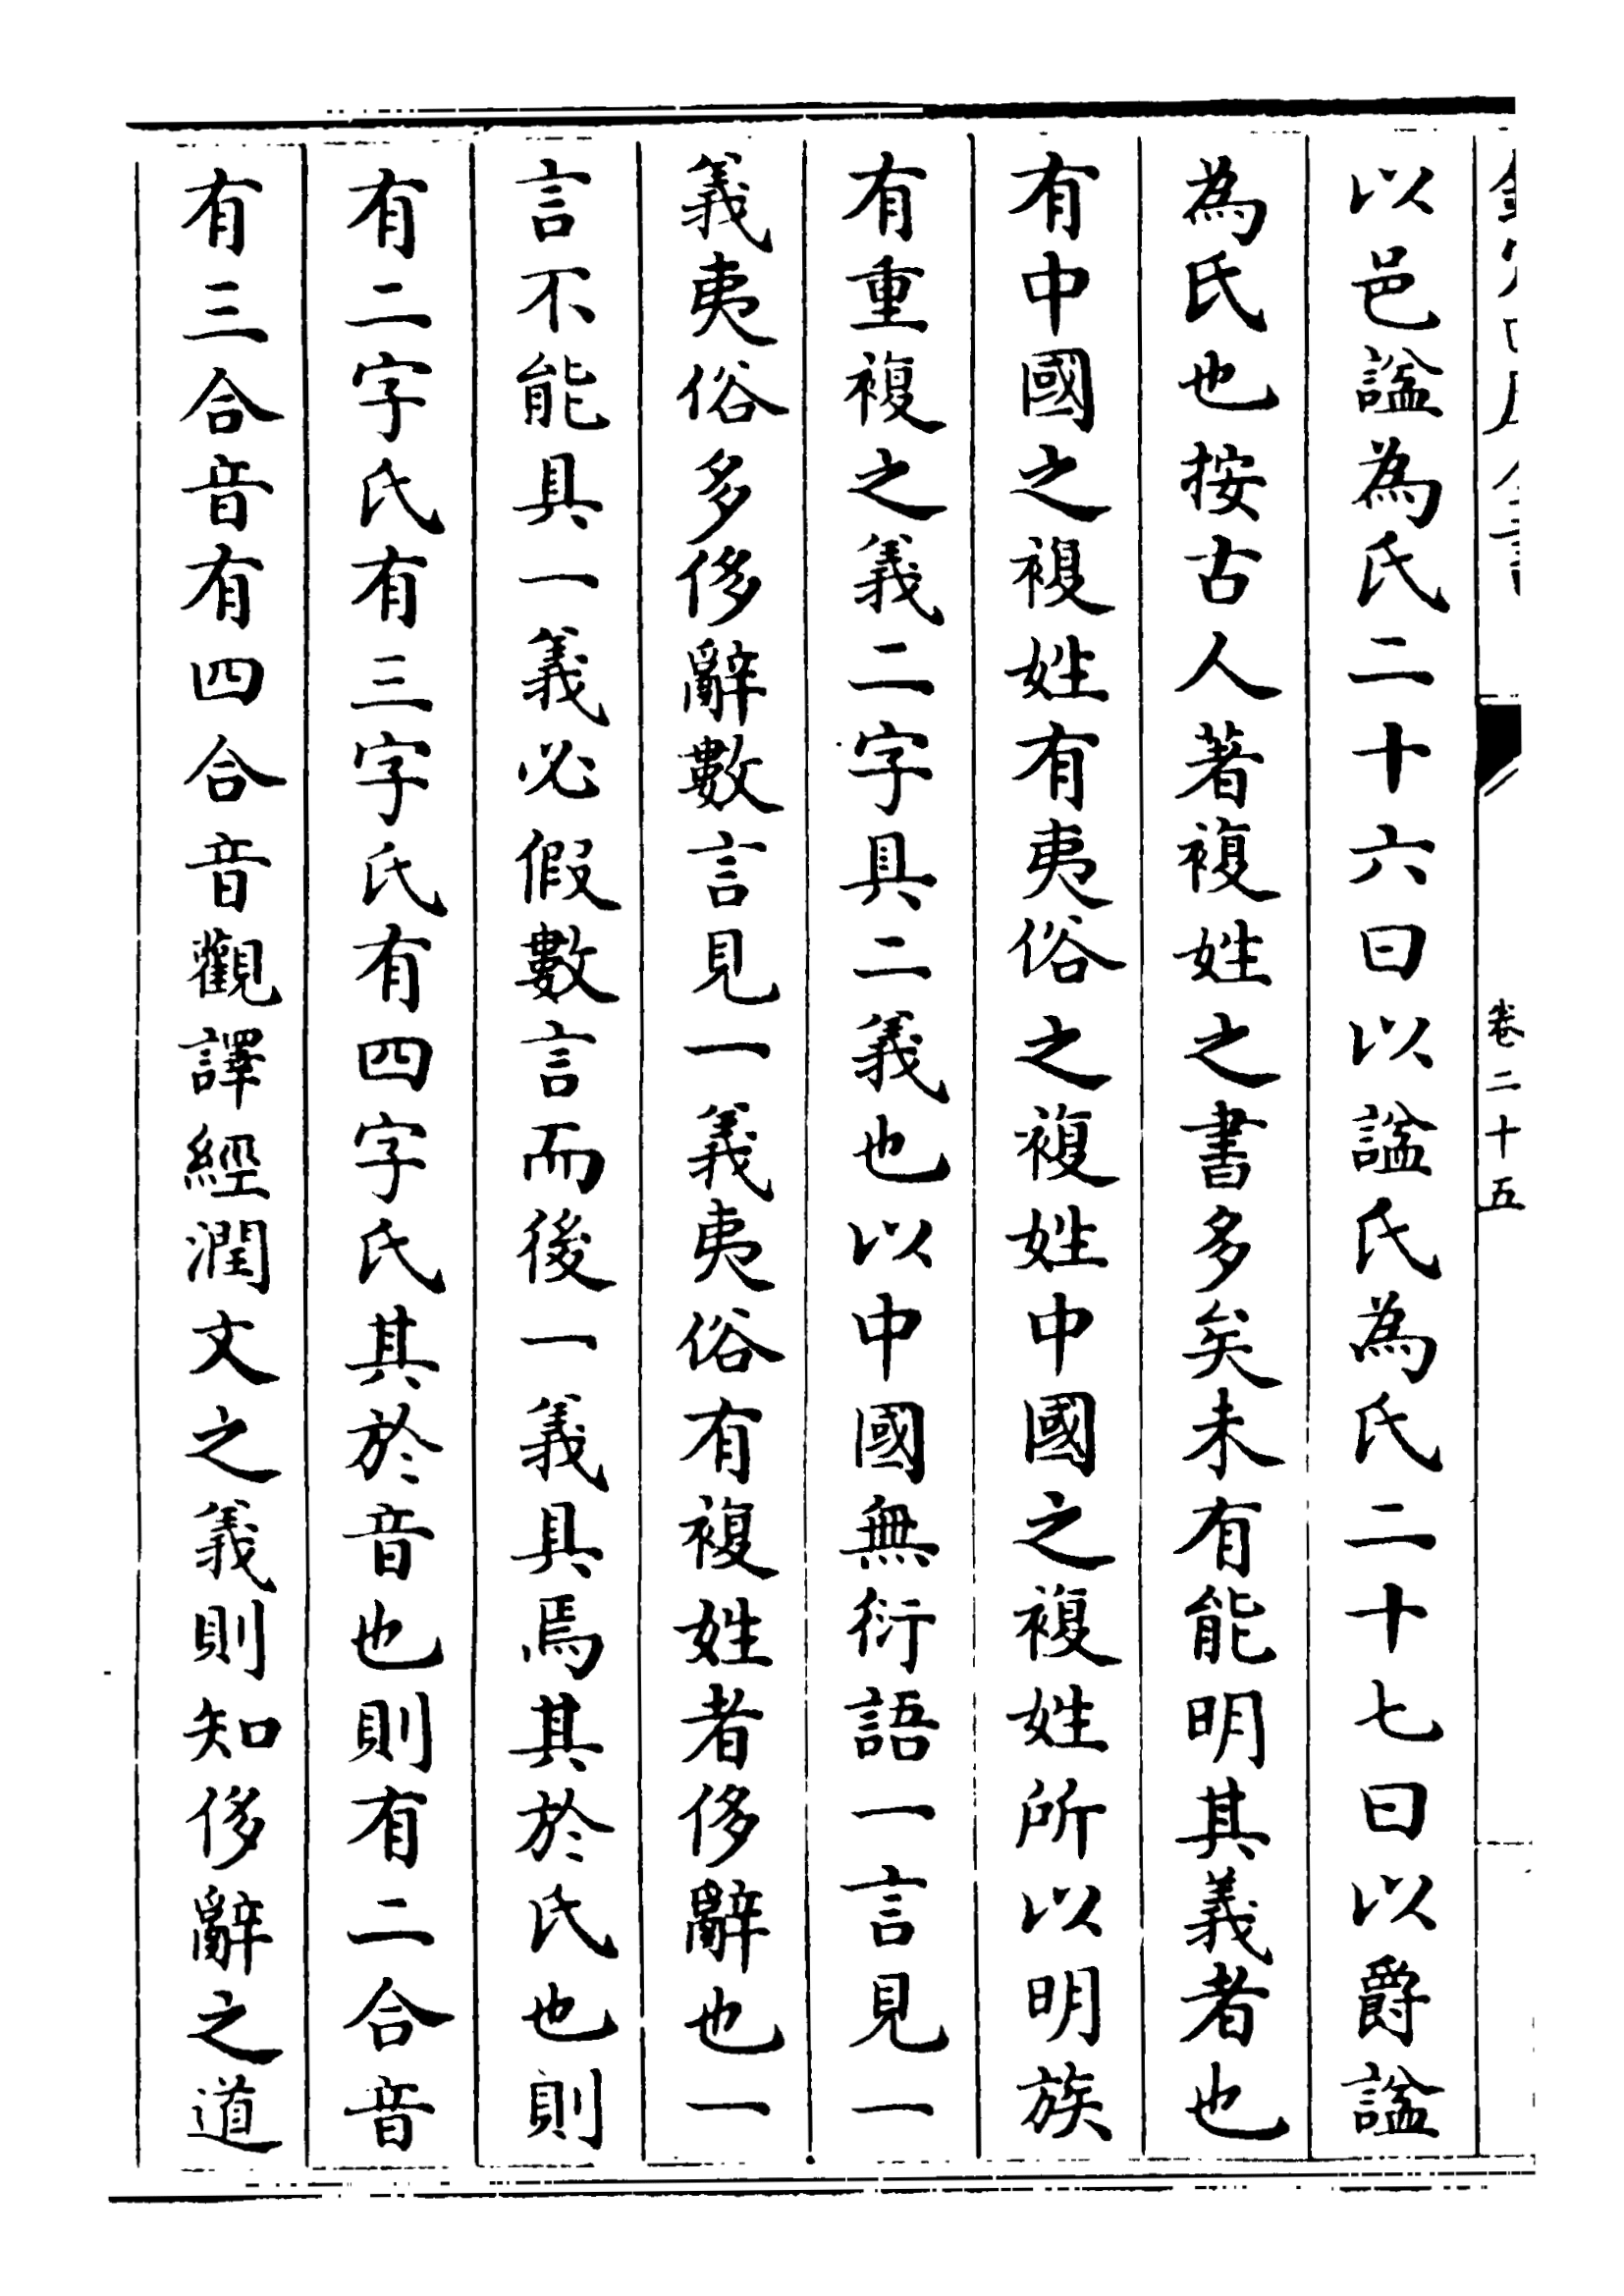 卷二十五
以邑諡為氏二十六曰以諡氏為氏二十七曰以爵諡
為氏也按古人著複姓之書多矣未有能明其義者也
有中國之複姓有夷俗之複姓中國之複姓所以明族
有重複之義二字具二義也以中國無衍語一言見一
義夷俗多侈辭數言見一義夷俗有複姓者侈辭也一
言不能具一義必假數言而後一義具焉其於氏也則
有二字氏有三字氏有四字氏其於音也則有二合音
有三合音有四合音觀譯經潤文之義則知侈辭之道